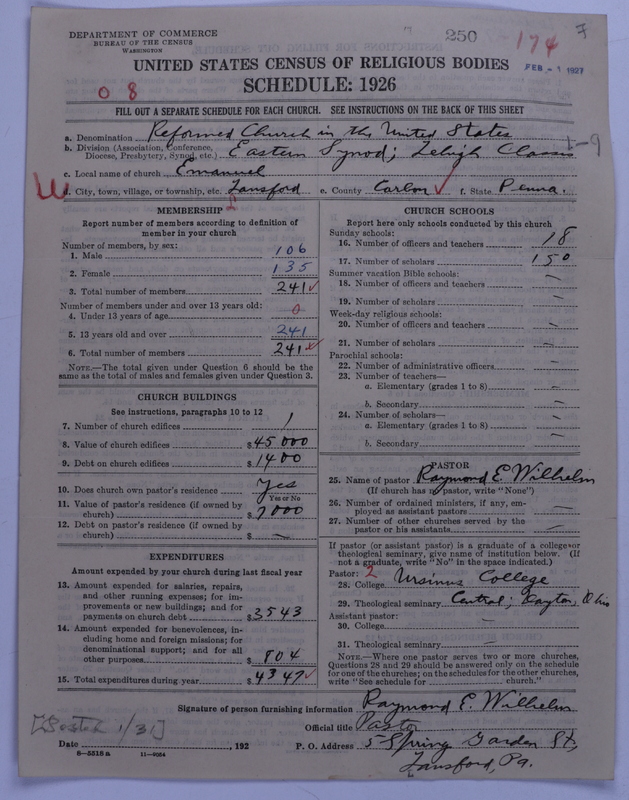 DEPARTMENT OF COMMERCE
BUREAU OF THE CENSUS
WASHINGTON
250
174
7
FEB - 1 1927
UNITED STATES CENSUS OF RELIGIOUS BODIES
SCHEDULE: 1926
0 8
FILL OUT A SEPARATE SCHEDULE FOR EACH CHURCH. SEE INSTRUCTIONS ON THE BACK OF THIS SHEET
a. Denomination Reformed Church in the United States
b. Division (Association, Conference, Diocese, Presbytery, Synod, etc.) Eastern Synod; Lehigh Classis
1-9
c. Local name of church Emanuel
d. City, town, village, or township, etc. Lansford e. County Carbon f. State Penna.
MEMBERSHIP
2
Report number of members according to definition of
member in your church
Number of members, by sex:
1. Male 106
2. Female 135
3. Total number of members 241
Number of members under and over 13 years old:
4. Under 13 years of age 0
5. 13 years old and over 241
6. Total number of members 241
NOTE.—The total given under Question 6 should be
same as the total of males and females given under Question 3.
CHURCH BUILDINGS
See instructions, paragraphs 10 to 12
7. Number of church edifices 1
8. Value of church edifices $45000
9. Debt on church edifices $1400
10. Does church own pastor's residence Yes
Yes or No
11. Value of pastor's residence (if owned by
church) $7000
12. Debt on pastor's residence (if owned by
church) $ —
EXPENDITURES
Amount expended by church during last fiscal year
13. Amount expended for salaries, repairs,
and other running expenses; for im-
provements or new buildings; and for
payments on church debt $3543
14. Amount expended for benevolences, in-
cluding home and foreign missions; for
denominational support; and for all
other purposes $804
15. Total expenditures during year $4347
CHURCH SCHOOLS
Report here only schools conducted by this church
Sunday schools:
16. Number of officers and teachers 18
17. Number of scholars 150
Summer vacation Bible schools:
18. Number of officers and teachers —
19. Number of scholars —
Week-day religious schools:
20. Number of officers and teachers —
21. Number of scholars —
Parochial schools:
22. Number of administrative officers —
23. Number of teachers—
a. Elementary (grades 1 to 8) —
b. Secondary —
24. Number of scholars—
a. Elementary (grades 1 to 8) —
b. Secondary —
PASTOR
25. Name of pastor Raymond E. Wilhelm
(If church has no pastor, write "None")
26. Number of ordained ministers, if any, em-
ployed as assistant pastors —
27. Number of other churches served by the
pastor or his assistants —
If pastor (or assistant pastor) is a graduate of a college or
theological seminary, give name of institution below. (If
not a graduate, write "No" in the space indicated.)
Pastor: 2
28. College Ursinus College
29. Theological seminary Central; Dayton, Ohio
Assistant pastor:
30. College —
31. Theological seminary —
NOTE.—Where one pastor serves two or more churches,
Questions 28 and 29 should be answered only on the schedule
for one of the churches; on the schedules for the other churches,
write "See schedule for church."
Signature of person furnishing information Raymond E. Wilhelm
Official title Pastor
1/31]
Date , 192 P. O. Address 5 Spring Garden St,
8—5518 a 11—9054
Lansford, Pa.